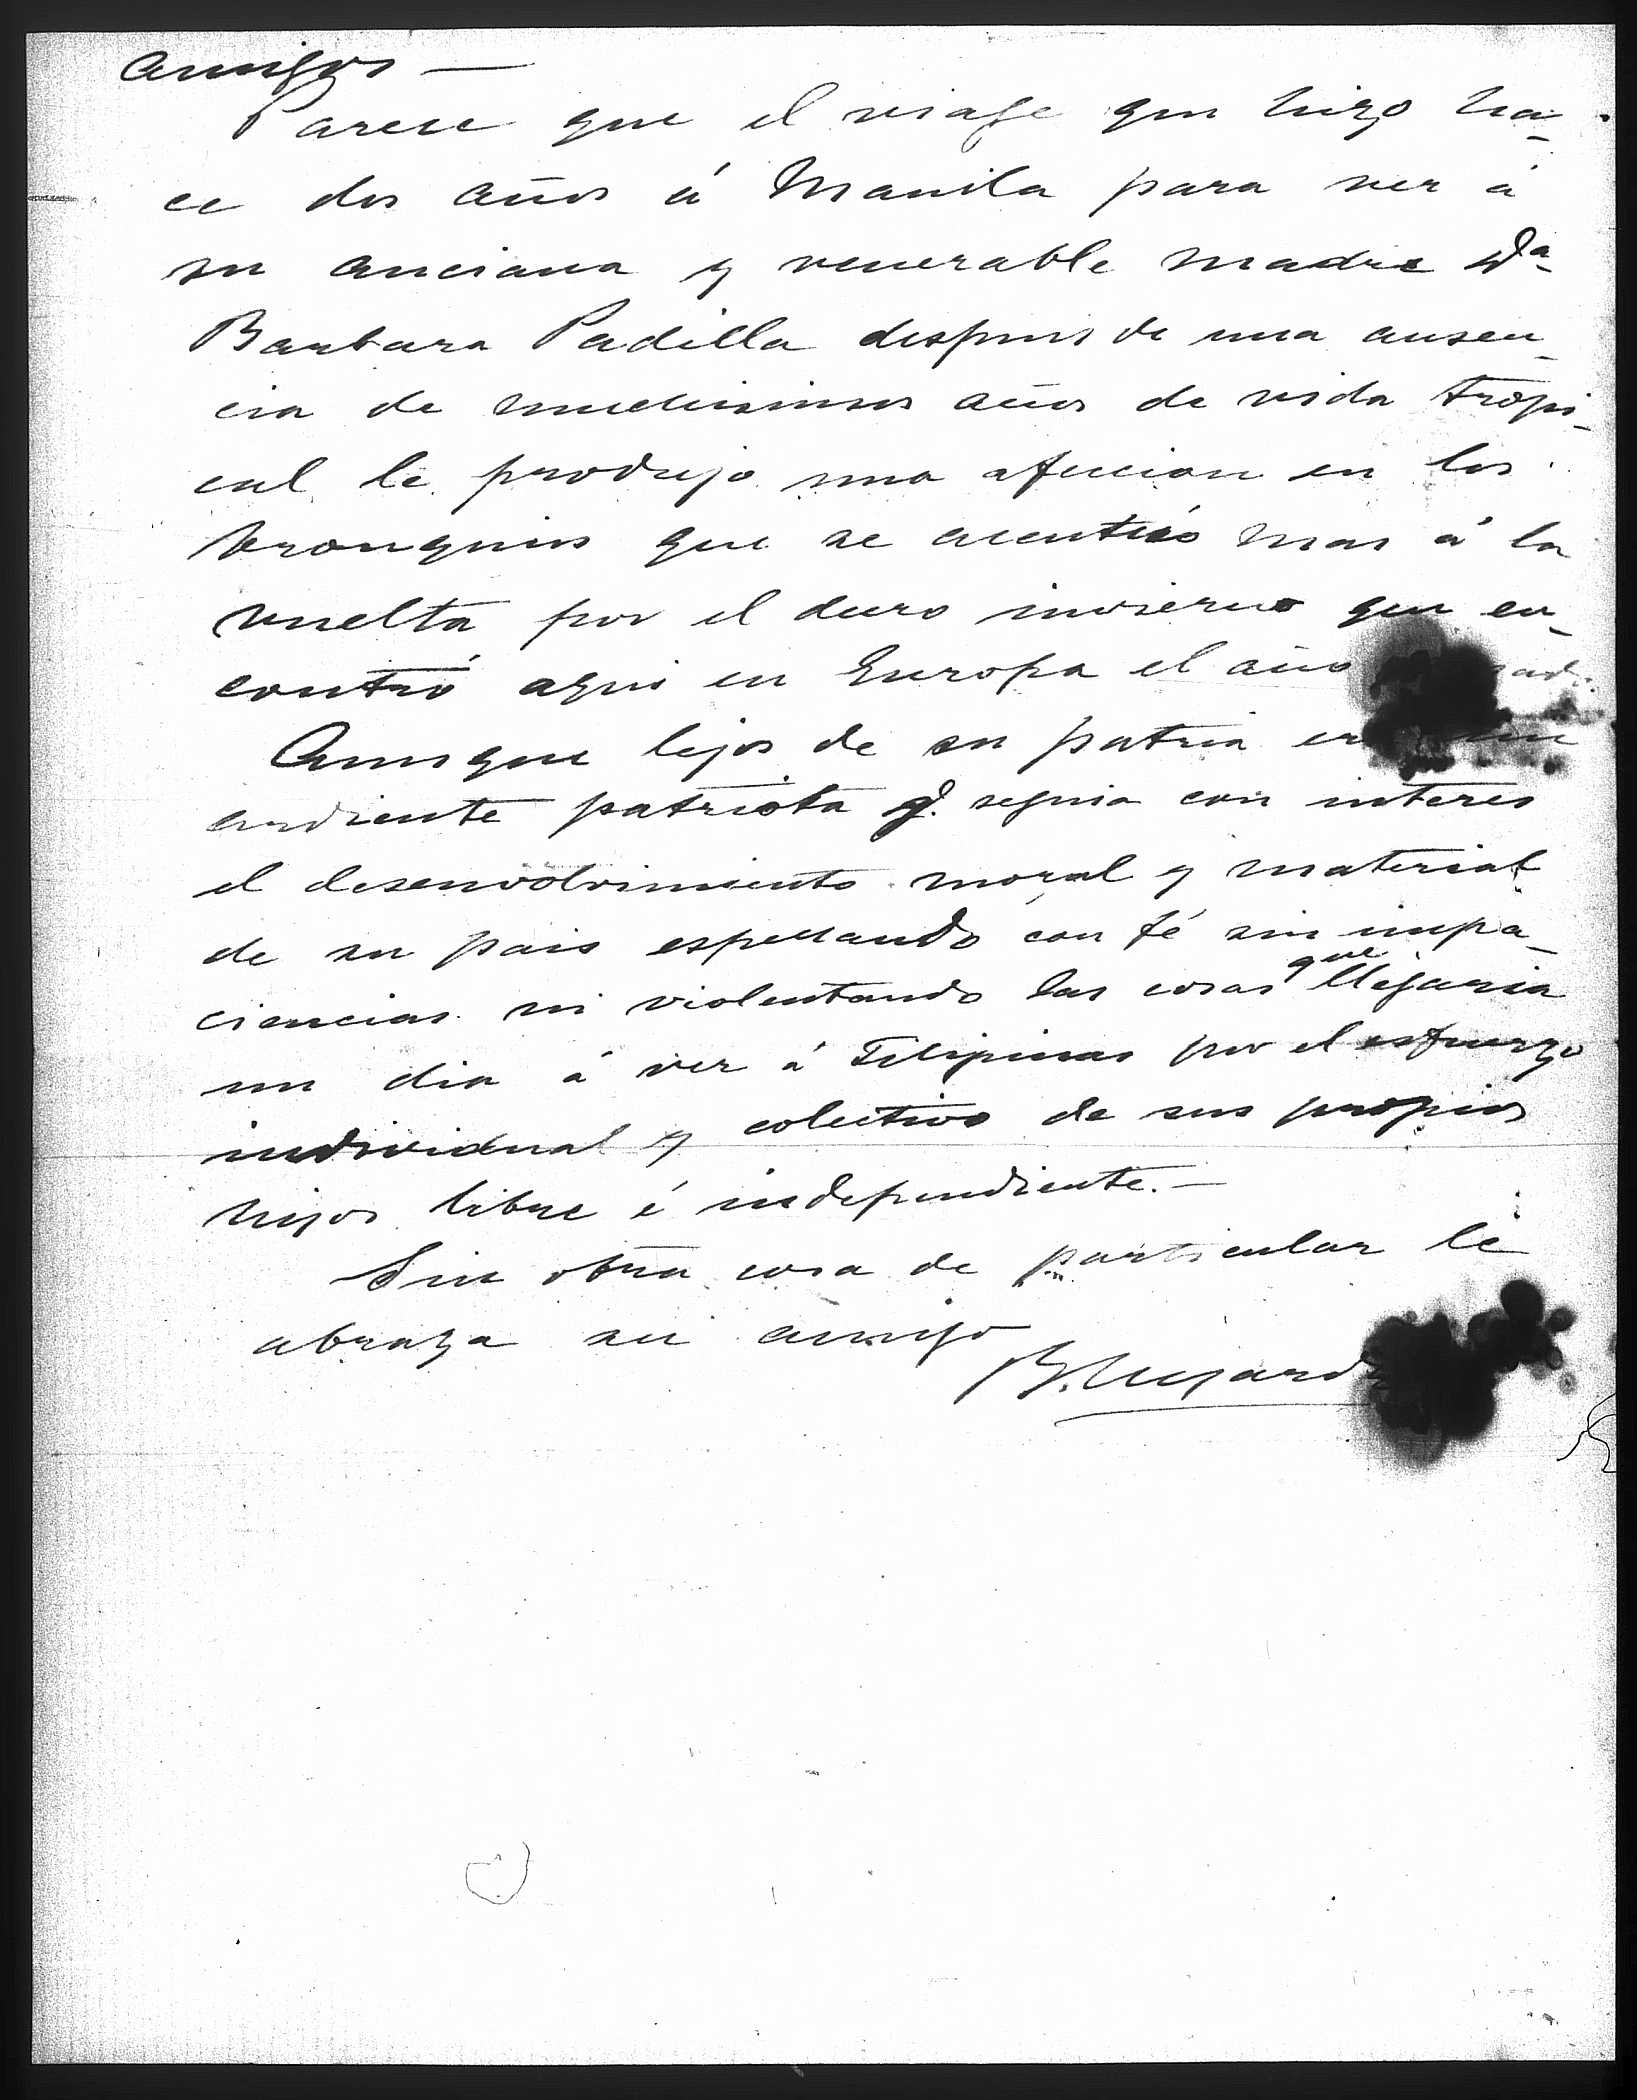 amigos —
Parece que el viaje que hizo ha-
ce dos años á Manila para ver á
su anciana y venerable madre Da
Barbara Padilla despues de una ausen-
cia de muchisimos años de vida tropi-
cal le produjo una afeccion en los
bronquios que se acentuó mas á la
vuelta por el duro invierno que en-
contró aqui en Europa el año
Aunque lejos de su patria era un
ardiente patriota q. seguia con interes
el desenvolvimiento moral y material
de su pais esperando con fé sin impa-
ciencias ni violentando las cosas que llegaria
un dia á ver á Filipinas por el esfuerzo
individual y colectivo de sus propios
hijos libre é independiente.—
Sin otra cosa de particular le
abraza su amigo